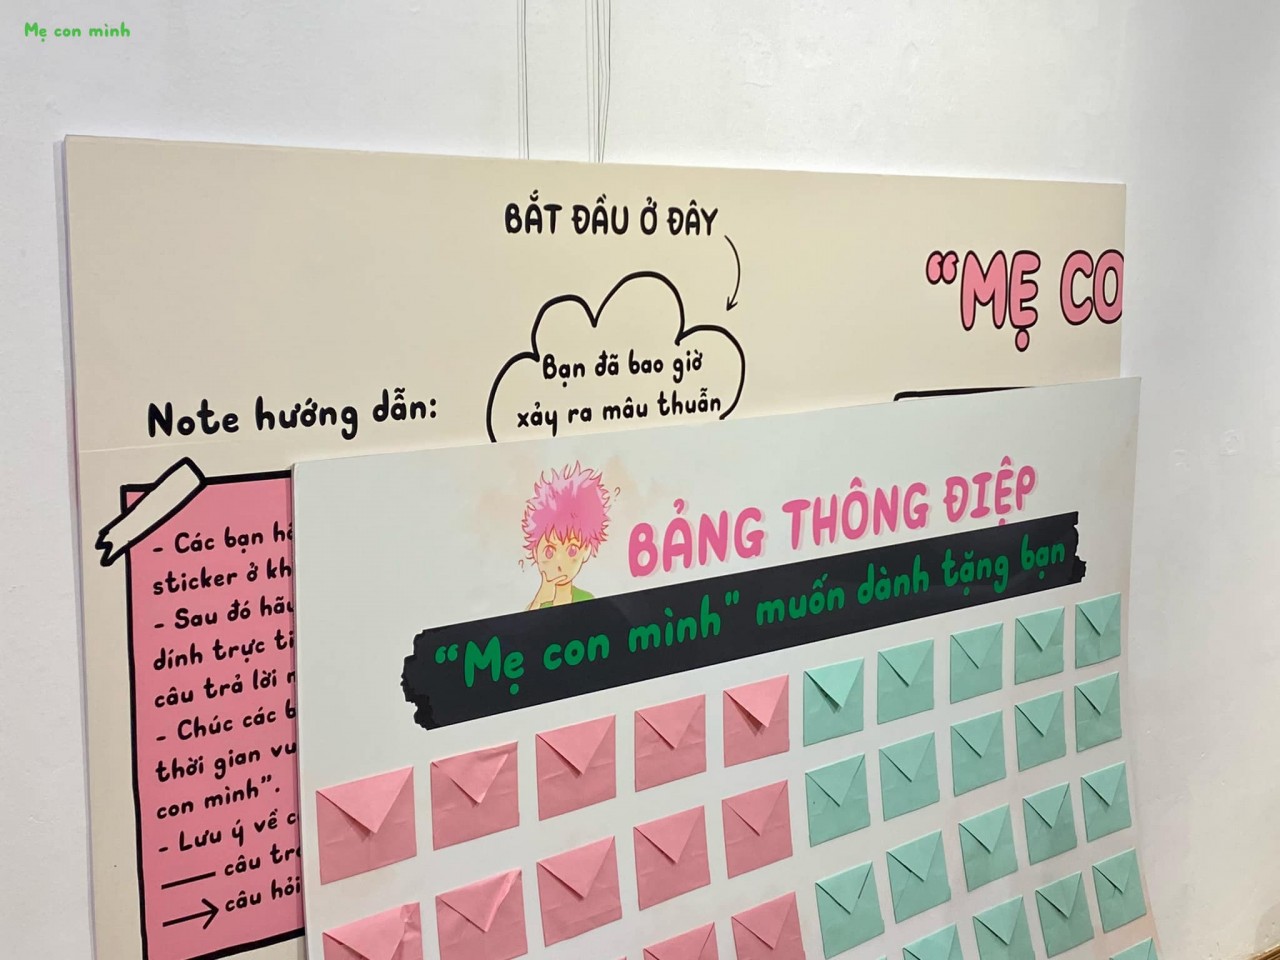 Mẹ con mình
BẮT ĐẦU Ở ĐÂY
“MẸ CO
Bạn đã bao giờ
xảy ra mâu thuẫn
Note hướng dẫn:
- Các bạn
sticker ở
- Sau đó
dính trực
câu trả lời
- Chúc các
thời gian
con mình”.
- Lưu ý về
câu
câu hỏi
BẢNG THÔNG ĐIỆP
“Mẹ con mình” muốn dành tặng bạn